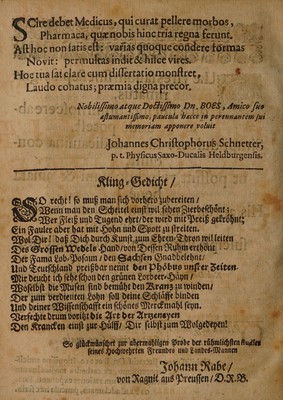 Scire debet Medicus, qui curat pellere morbos,
Pharmaca, quæ nobis hinc tria regna ferunt.
Ast hoc non satis est: varias quoque condere formas
Novit: permultas indit & hisce vires.
Hoc tua sat clare cum dissertatio monstret,
Laudo conatus; præmia digna precor.
Nobilissimo atque Doctissimo Dn. BOES, Amico suo
æstumantissimo, paucula hæcce in perennantem sui
memoriam apponere voluit
Johannes Christophorus Schnetter,
p. t. Physicus Saxo-Ducalis Heldburgensis.
Kling-Gedicht/
SO recht! so muß man sich vorhero zubereiten/
Wenn man den Scheitel einst will sehen Zierbeschönt;
Wer Fleiß und Tugend ehrt/ der wird mit Preiß gekröhnt;
Ein Fauler aber hat mit Hohn und Spott zu streiten.
Wol Dir! daß Dich durch Kunst zum Ehren-Thron wil leiten
Des Grossen Wedels Hand/ von Dessen Ruhm erthönt
Der Fama Lob-Posaun/ den Sachsen Gnadbelehnt/
Und Teutschland preißbar nennt den Phöbus unsrer Zeiten.
Mir deucht ich seh schon den grünen Lorbeer-Häyn/
Woselbst die Musen sind bemüht den Kranz zu winden/
Der zum verdienten Lohn soll deine Schläffe binden
Und deiner Wissenschafft ein schönes Merckmahl seyn.
Versuche drum vortzu die Art der Artzeneyen
Den Krancken einst zur Hülff/ Dir selbst zum Wolgedeyen!
So glückwünschet zur übermahligen Probe der rühmlichsten Studien
seines Hochwehrten Freundes und Landes-Mannes
Johann Rabe/
von Ragnit aus Preussen/ D.R.B.